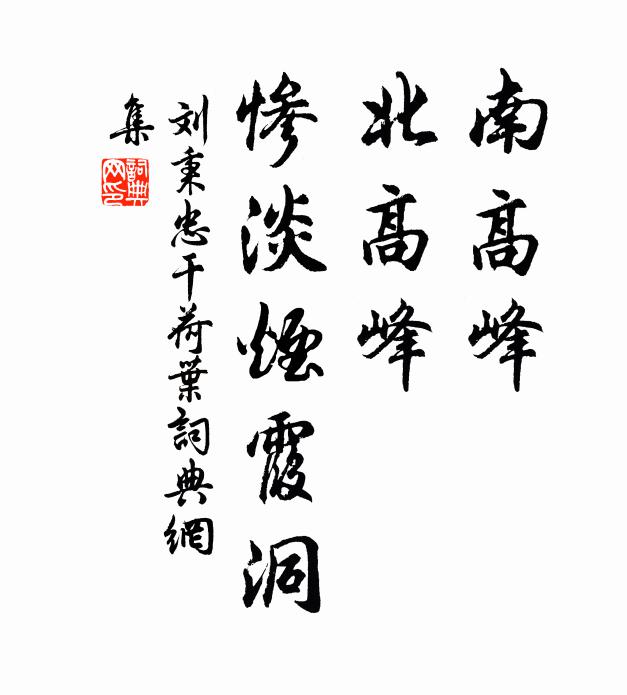 南高峰
北高峰
惨淡煙霞洞
刘秉忠干荷葉詞典網
集
詞典
网印